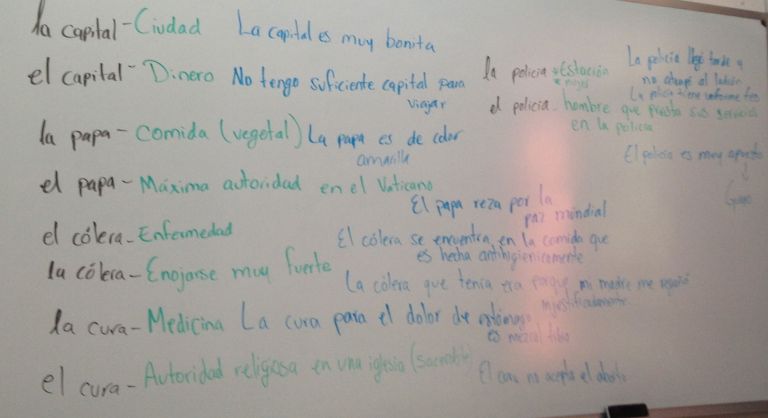 la capital - Ciudad La capital es muy bonita
el capital - Dinero No tengo suficiente capital para
viajar
la papa - Comida (vegetal) La papa es de color
amarilla
el papa - Máxima autoridad en el Vaticano
El papa reza por la
paz mundial
el cólera - Enfermedad El cólera se encuentra en la comida que
es hecha antihigienicamente
la cólera - Enojarse muy fuerte
La cólera que tenía era porque mi madre me regañó
injustificadamente
la cura - Medicina La cura para el dolor de estómago
es mezcal tibio
el cura - Autoridad religiosa en una iglesia (sacerdote)
El cura no acepta el aborto
la policia Estación
mujer
La policía llegó tarde y
no atrapó al ladrón
La policia tiene uniforme
el policia - hombre que presta sus servicios
en la policia
El policia es muy apuesto
Guapo